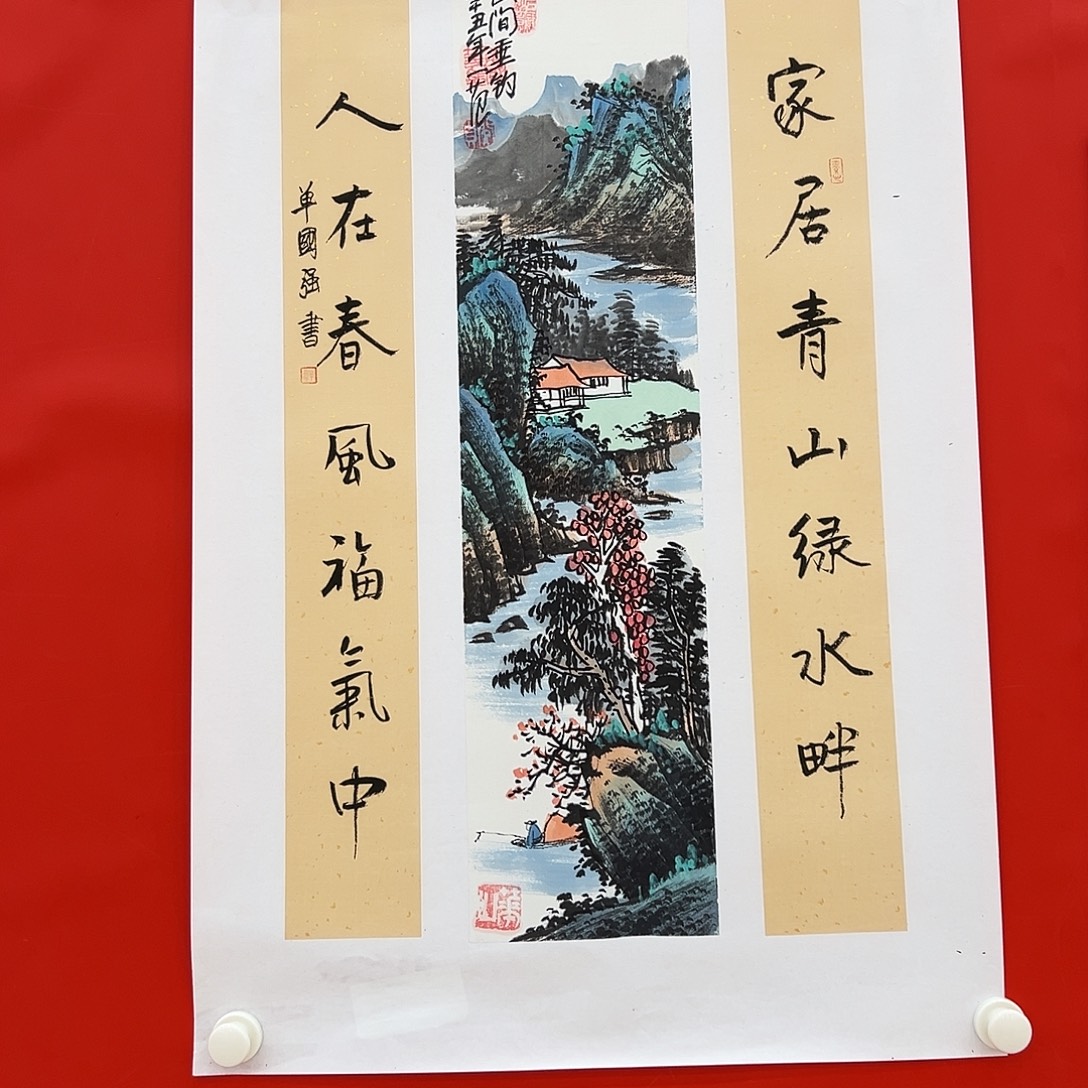 家居青山绿水畔
間垂钓
辛丑年一月
人在春風福氣中
单國强書